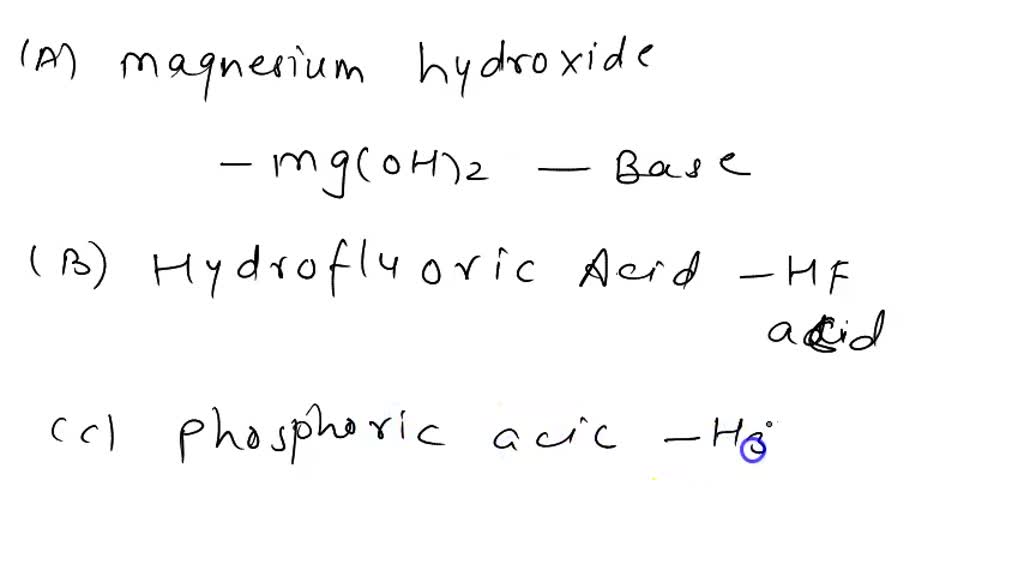 (A) magnesium hydroxide
- mg(OH)2 - Base
(B) Hydrofluoric Acid - HF
acid
(c) phosphoric acic - H3